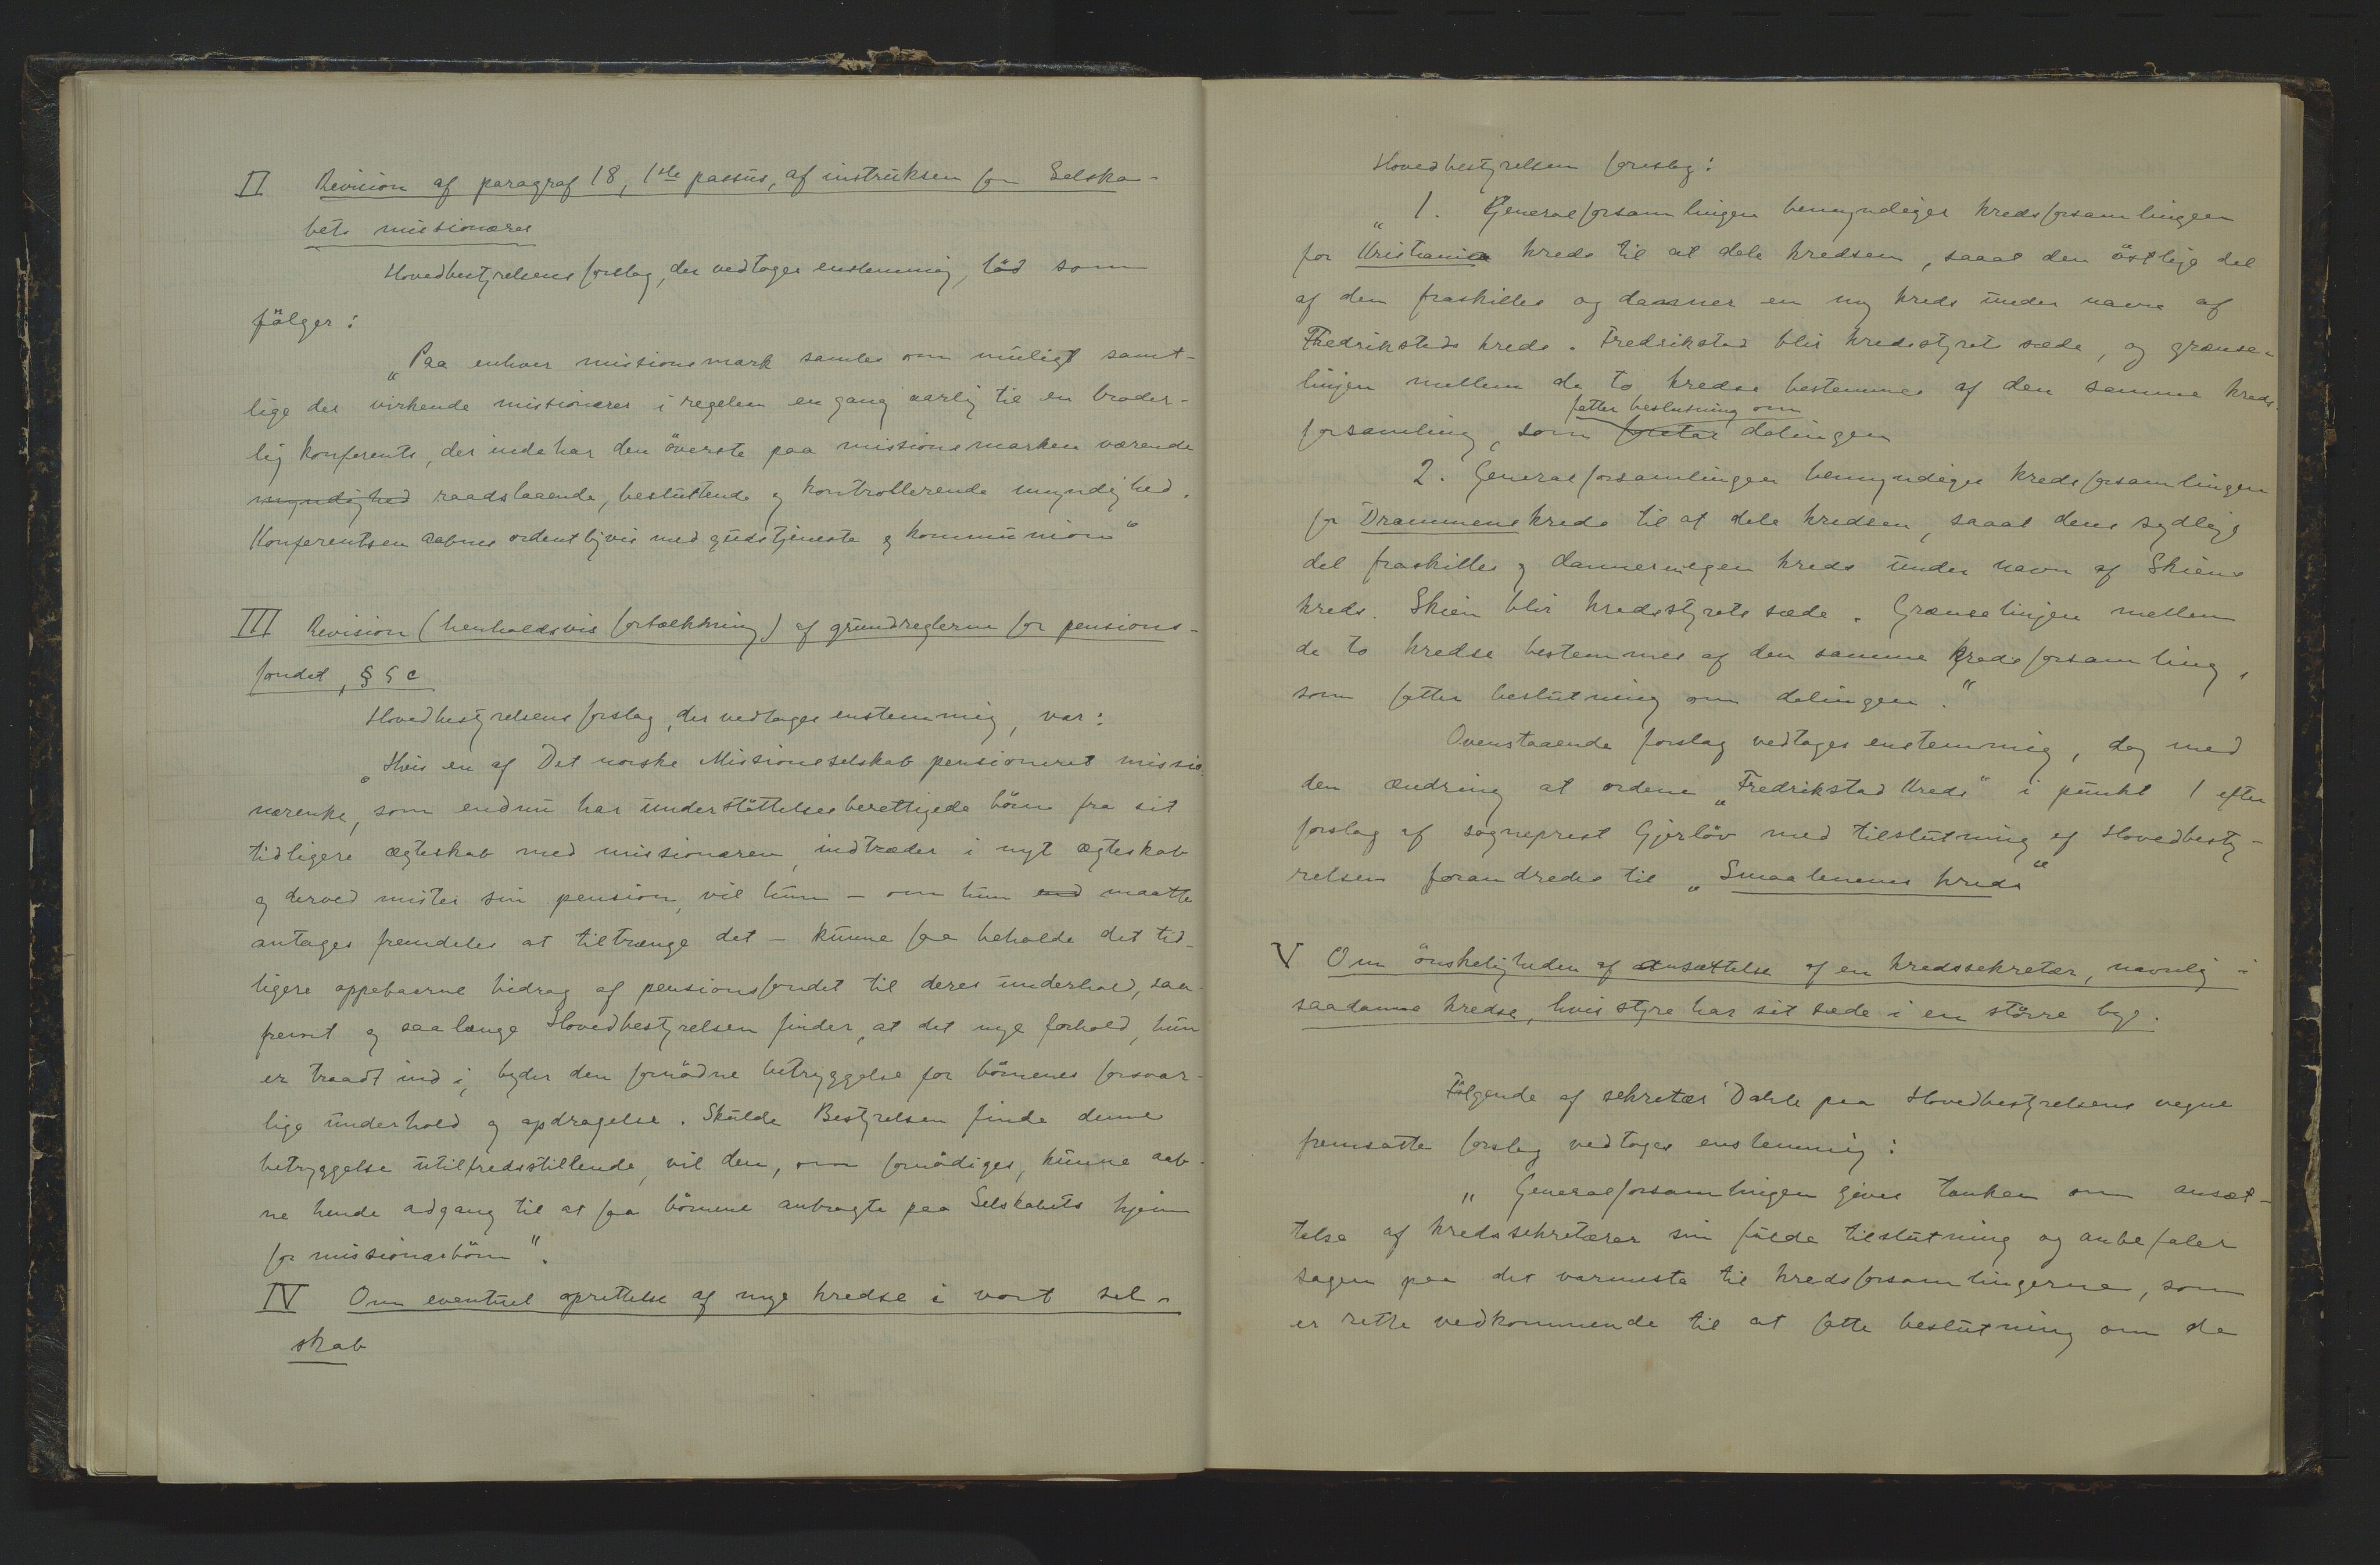 II Revision af paragraf 18, 1ste passus, af instruksen for Selska-
bets missionærer
Hovedbestyrelsens forslag, der vedtoges enstemmig, lød som
følger:
„Paa enhver missionsmark samles om muligt samt-
lige der virkende missionærer i regelen en gang aarlig til en broder-
lig konferents, der indehar den øverste paa missionsmarken værende
myndighed raadslaaende, besluttende og kontrollerende myndighed.
Konferentsen aabnes ordentligvis med gudstjeneste og kommunion“
III Revision (henholdsvis fortolkning) af grundreglerne for pensions-
fondet, § 5 c
Hovedbestyrelsens forslag, der vedtoges enstemmig, var:
„Hvis en af Det norske Missionsselskab pensioneret missio-
nærenke, som endnu har understøttelsesberettigede børn fra sit
tidligere ægteskab med missionæren, indtræder i nyt ægteskab
og derved mister sin pension, vil hun – om hun end maatte
antages fremdeles at tiltrænge det – kunne faa beholde det tid-
ligere oppebaarne bidrag af pensionsfondet til deres underhold, saa-
fremt og saalænge Hovedbestyrelsen finder, at det nye forhold, hun
er traadt ind i, byder den fornødne betryggelse for børnenes forsvar-
lige underhold og opdragelse. Skulde Bestyrelsen finde denne
betryggelse utilfredsstillende, vil den, om fornødiges, kunne aab-
ne hende adgang til at faa børnene anbragte paa Selskabets hjem
for missionærbørn“.
IV Om eventuel oprettelse af nye kredse i vort sel-
skab
Hovedbestyrelsen foreslog:
„1. Generalforsamlingen bemyndiger kredsforsamlingen
for Kristiania kreds til at dele kredsen, saaat den østlige del
af den fraskilles og danner en ny kreds under navn af
Fredrikstads kreds. Fredrikstad blir kredsstyrets sæde, og grænse-
linjen mellem de to kredse bestemmes af den samme kreds-
fatter beslutning om
forsamling, som foretar delingen
2. Generalforsamlingen bemyndiger kredsforsamlingen
for Drammens kreds til at dele kredsen, saaat dens sydlige
del fraskilles og danner en egen kreds under navn af Skiens
kreds. Skien blir kredsstyrets sæde. Grænselinjen mellem
de to kredse bestemmes af den samme kredsforsamling,
som fatter beslutning om delingen.“
Ovenstaaende forslag vedtoges enstemmig, dog med
den ændring at ordene „Fredrikstad kreds“ i punkt 1 efter
forslag af sogneprest Gjerløv med tilslutning af Hovedbesty-
relsen forandredes til „Smaalenenes kreds“
V Om ønskeligheden af ansættelse af en kredssekretær, navnlig i
saadanne kredse, hvis styre har sit sæde i en større by.
Følgende af sekretær Dahle paa Hovedbestyrelsens vegne
fremsatte forslag vedtoges enstemmig:
„Generalforsamlingen giver tanken om ansæt-
telse af kredssekretærer sin fulde tilslutning og anbefaler
sagen paa det varmeste til kredsforsamlingerne, som
er rette vedkommende til at fatte beslutning om de